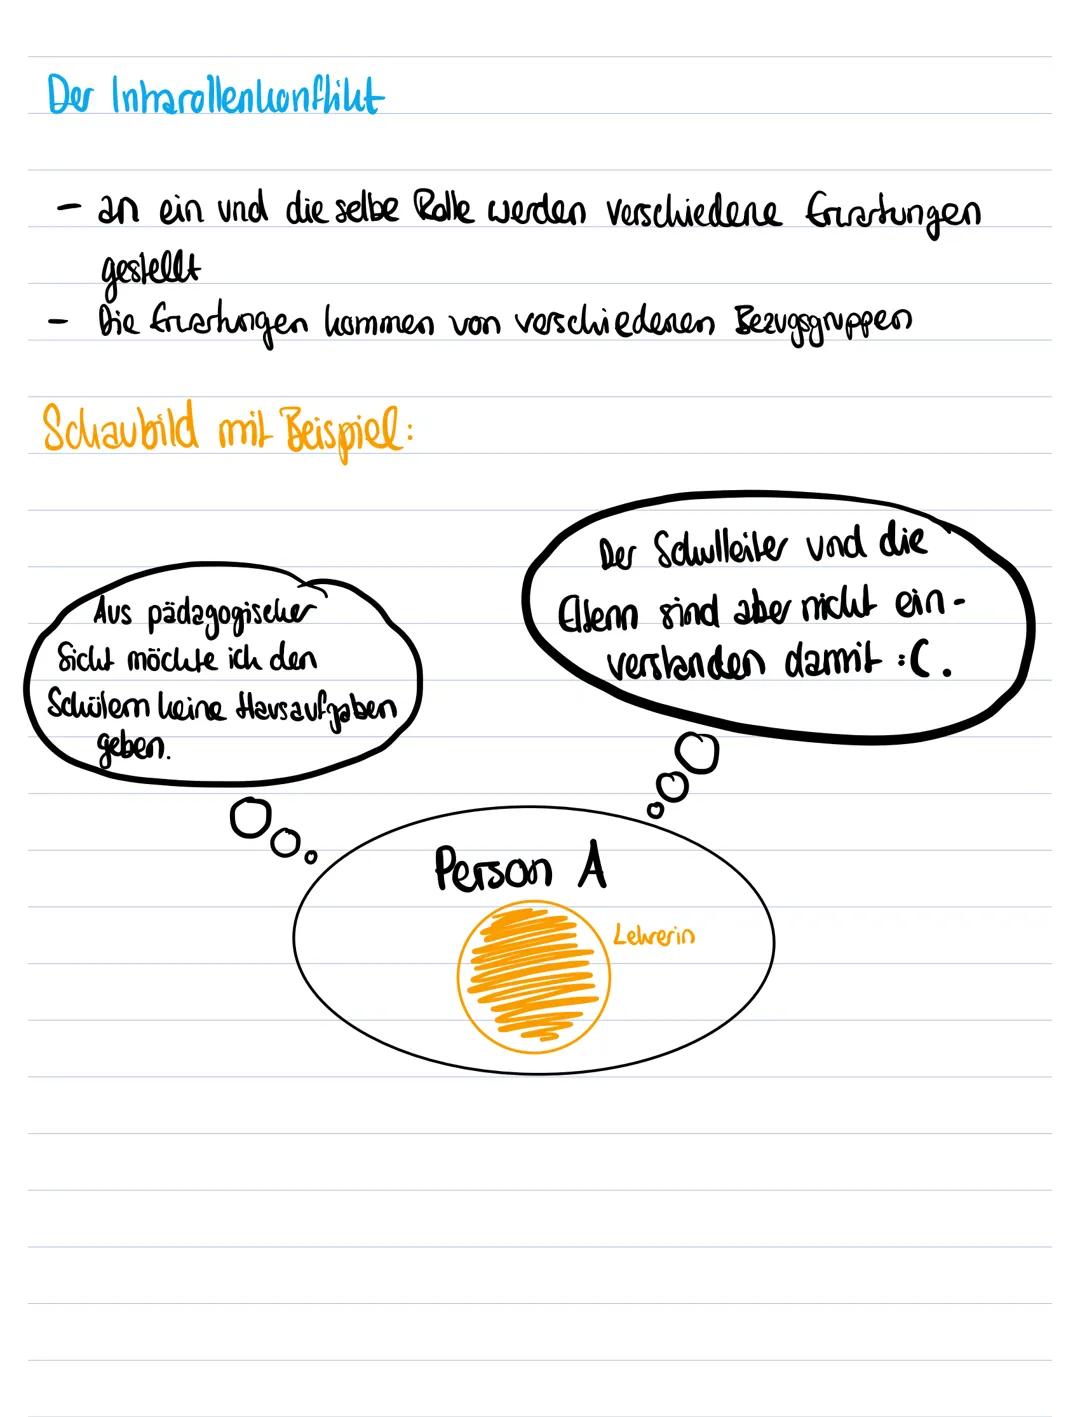 Der Intrarollenkonflikt
- an ein und die selbe Rolle werden verschiedene Erwartungen
gestellt
- Die Erwartungen kommen von verschiedenen Bezugsgruppen
Schaubild mit Beispiel:
Aus pädagogischer
Sicht möchte ich den
Schülern keine Hausaufgaben
geben.
Der Schulleiter und die
Eltern sind aber nicht ein-
verstanden damit :C.
Person A
Lehrerin